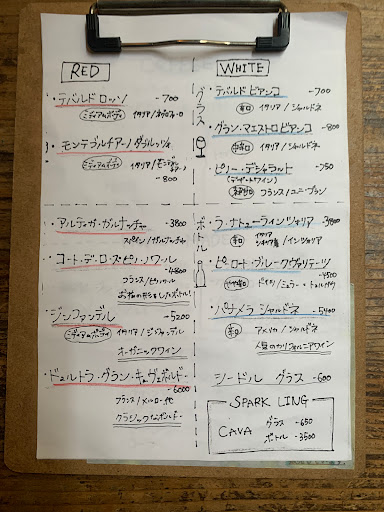 RED
・テバルド ロッソ -700
ミディアムボディ イタリア/
・モンテプルチアーノ ダブルッツォ
ミディアムボディ イタリア/モンテプルチアーノ
-800
グラス
WHITE
・テバルド ビアンコ -700
辛口 イタリア/シャルドネ
・グラン・マエストロ ビアンコ -800
イタリア/シャルドネ
・ピノー・デ・シャラント -750
(デザートワイン)
フランス/ユニ・ブラン
・アルティガ・ガルナッチャ -3800
スペイン/ガルナッチャ
・コート・デ・ローズ・ピノ・ノワール
-4800
フランス/ピノ・ノワール
お花の形をしたボトル!
・ジンファンデル -5200
ミディアムボディ イタリア/ジンファンデル
オーガニックワイン
・ドゥルトラ・グラン・キュヴェ・ボルドー
-6000
フランス/メルロー 他
クラシックなボルドー
ボトル
・ラ・ナトゥーラ インツォリア -3800
辛口 イタリア シチリア島/インツォリア
・ピーロート・ブルー クヴァリテーツ
-4500
やや辛口 ドイツ/ミュラー・トゥルガウ
・パナメラ シャルドネ -5400
辛口 アメリカ/シャルドネ
人気のカリフォルニアワイン
シードル グラス -600
SPARKLING
CAVA グラス -650
ボトル -3500